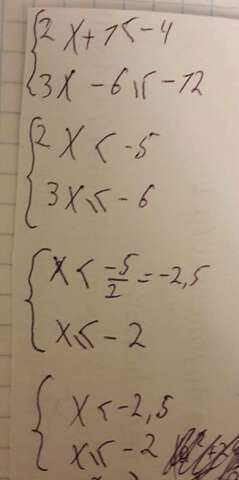 {2x+1<-4
{3x-6⩽-12
{2x<-5
{3x⩽-6
{x<-5/2=-2,5
{x⩽-2
{x<-2,5
{x⩽-2